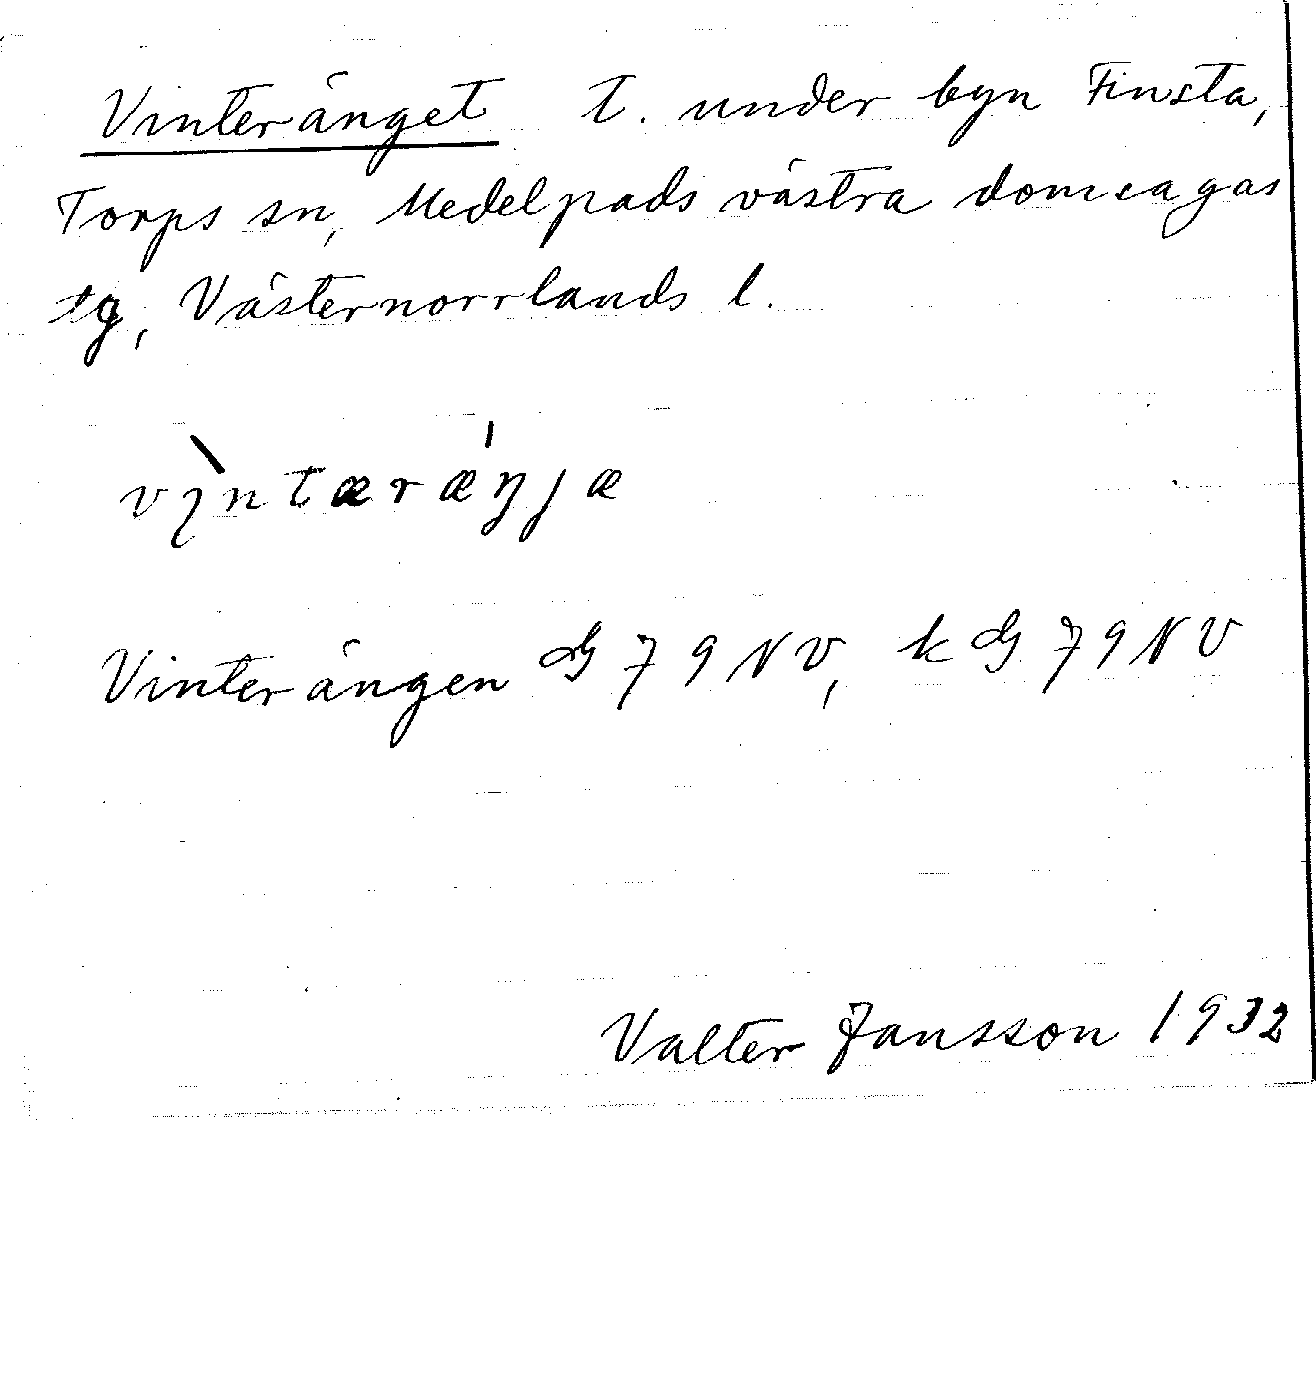 Vinteränget t. under byn Finsta,
Torps sn, Medelpads västra domsagas
tg, Västernorrlands l.
vıntæræŋjæ
Vinterängen G 79 NV, k G 79 NV
Valter Jansson 1932